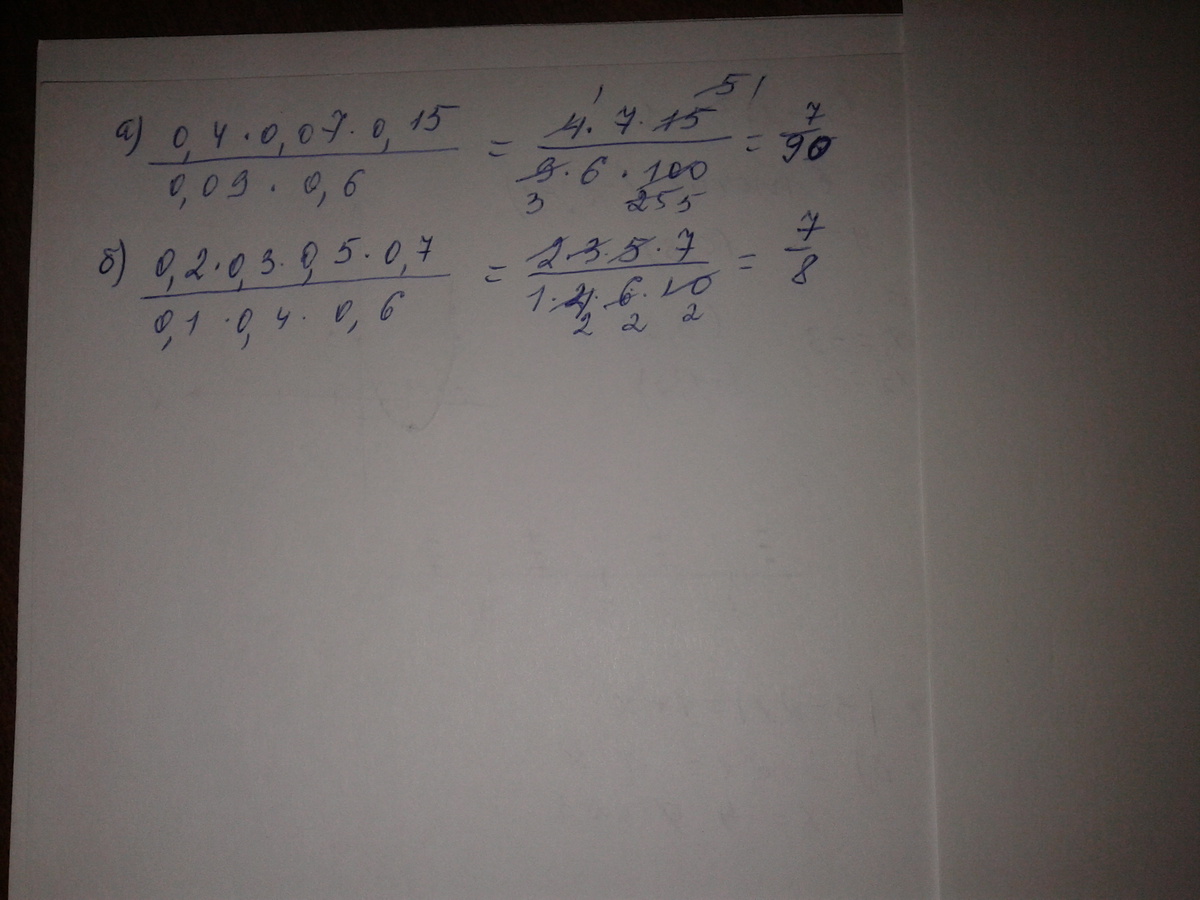 а) 0,4 · 0,07 · 0,15 / 0,09 · 0,6 = 4 · 7 · 15 / 9 · 6 · 100 = 7/90
1 5 1
3 25 5
б) 0,2 · 0,3 · 0,5 · 0,7 / 0,1 · 0,4 · 0,6 = 2 · 3 · 5 · 7 / 1 · 4 · 6 · 10 = 7/8
2 2 2